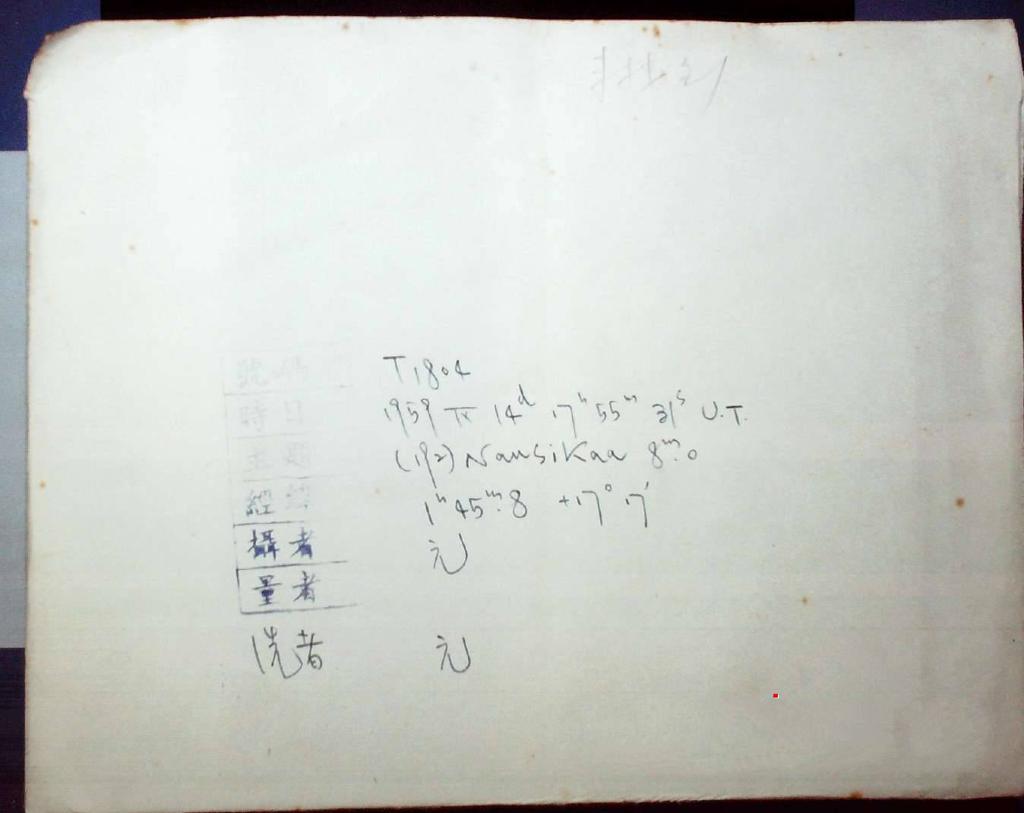 號碼 T1804
時日 1959 IX 14ᵈ 17ʰ 55ᵐ 31ˢ U.T.
主題 (192) Nausikaa 8ᵐ.0
經緯 1ʰ 45ᵐ.8 +17° 17′
攝者 元
量者
洗者 元